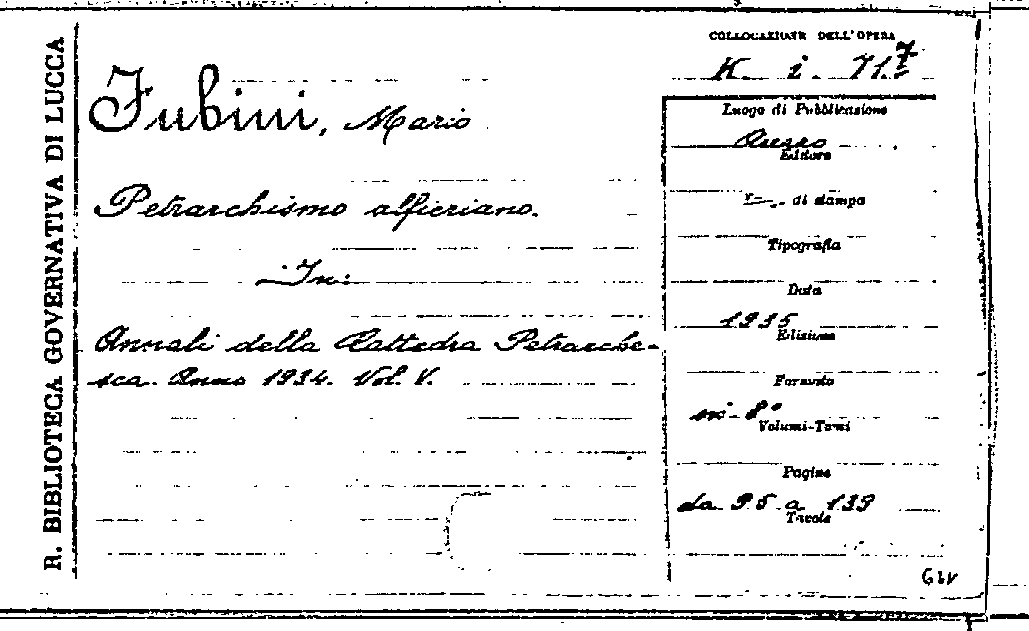 R. BIBLIOTECA GOVERNATIVA DI LUCCA
COLLOCAZIONE DELL'OPERA
K. i. 71.7
Fubini, Mario
Petrarchismo alfieriano.
In:
Annali della Cattedra Petrarche-
sca. Anno 1934. Vol. V.
Luogo di Pubblicazione
Arezzo
Editore
di stampa
Tipografia
Data
1935
Edizione
Formato
in-8°
Volumi-Tomi
Pagine
da 95 a 139
Tavole